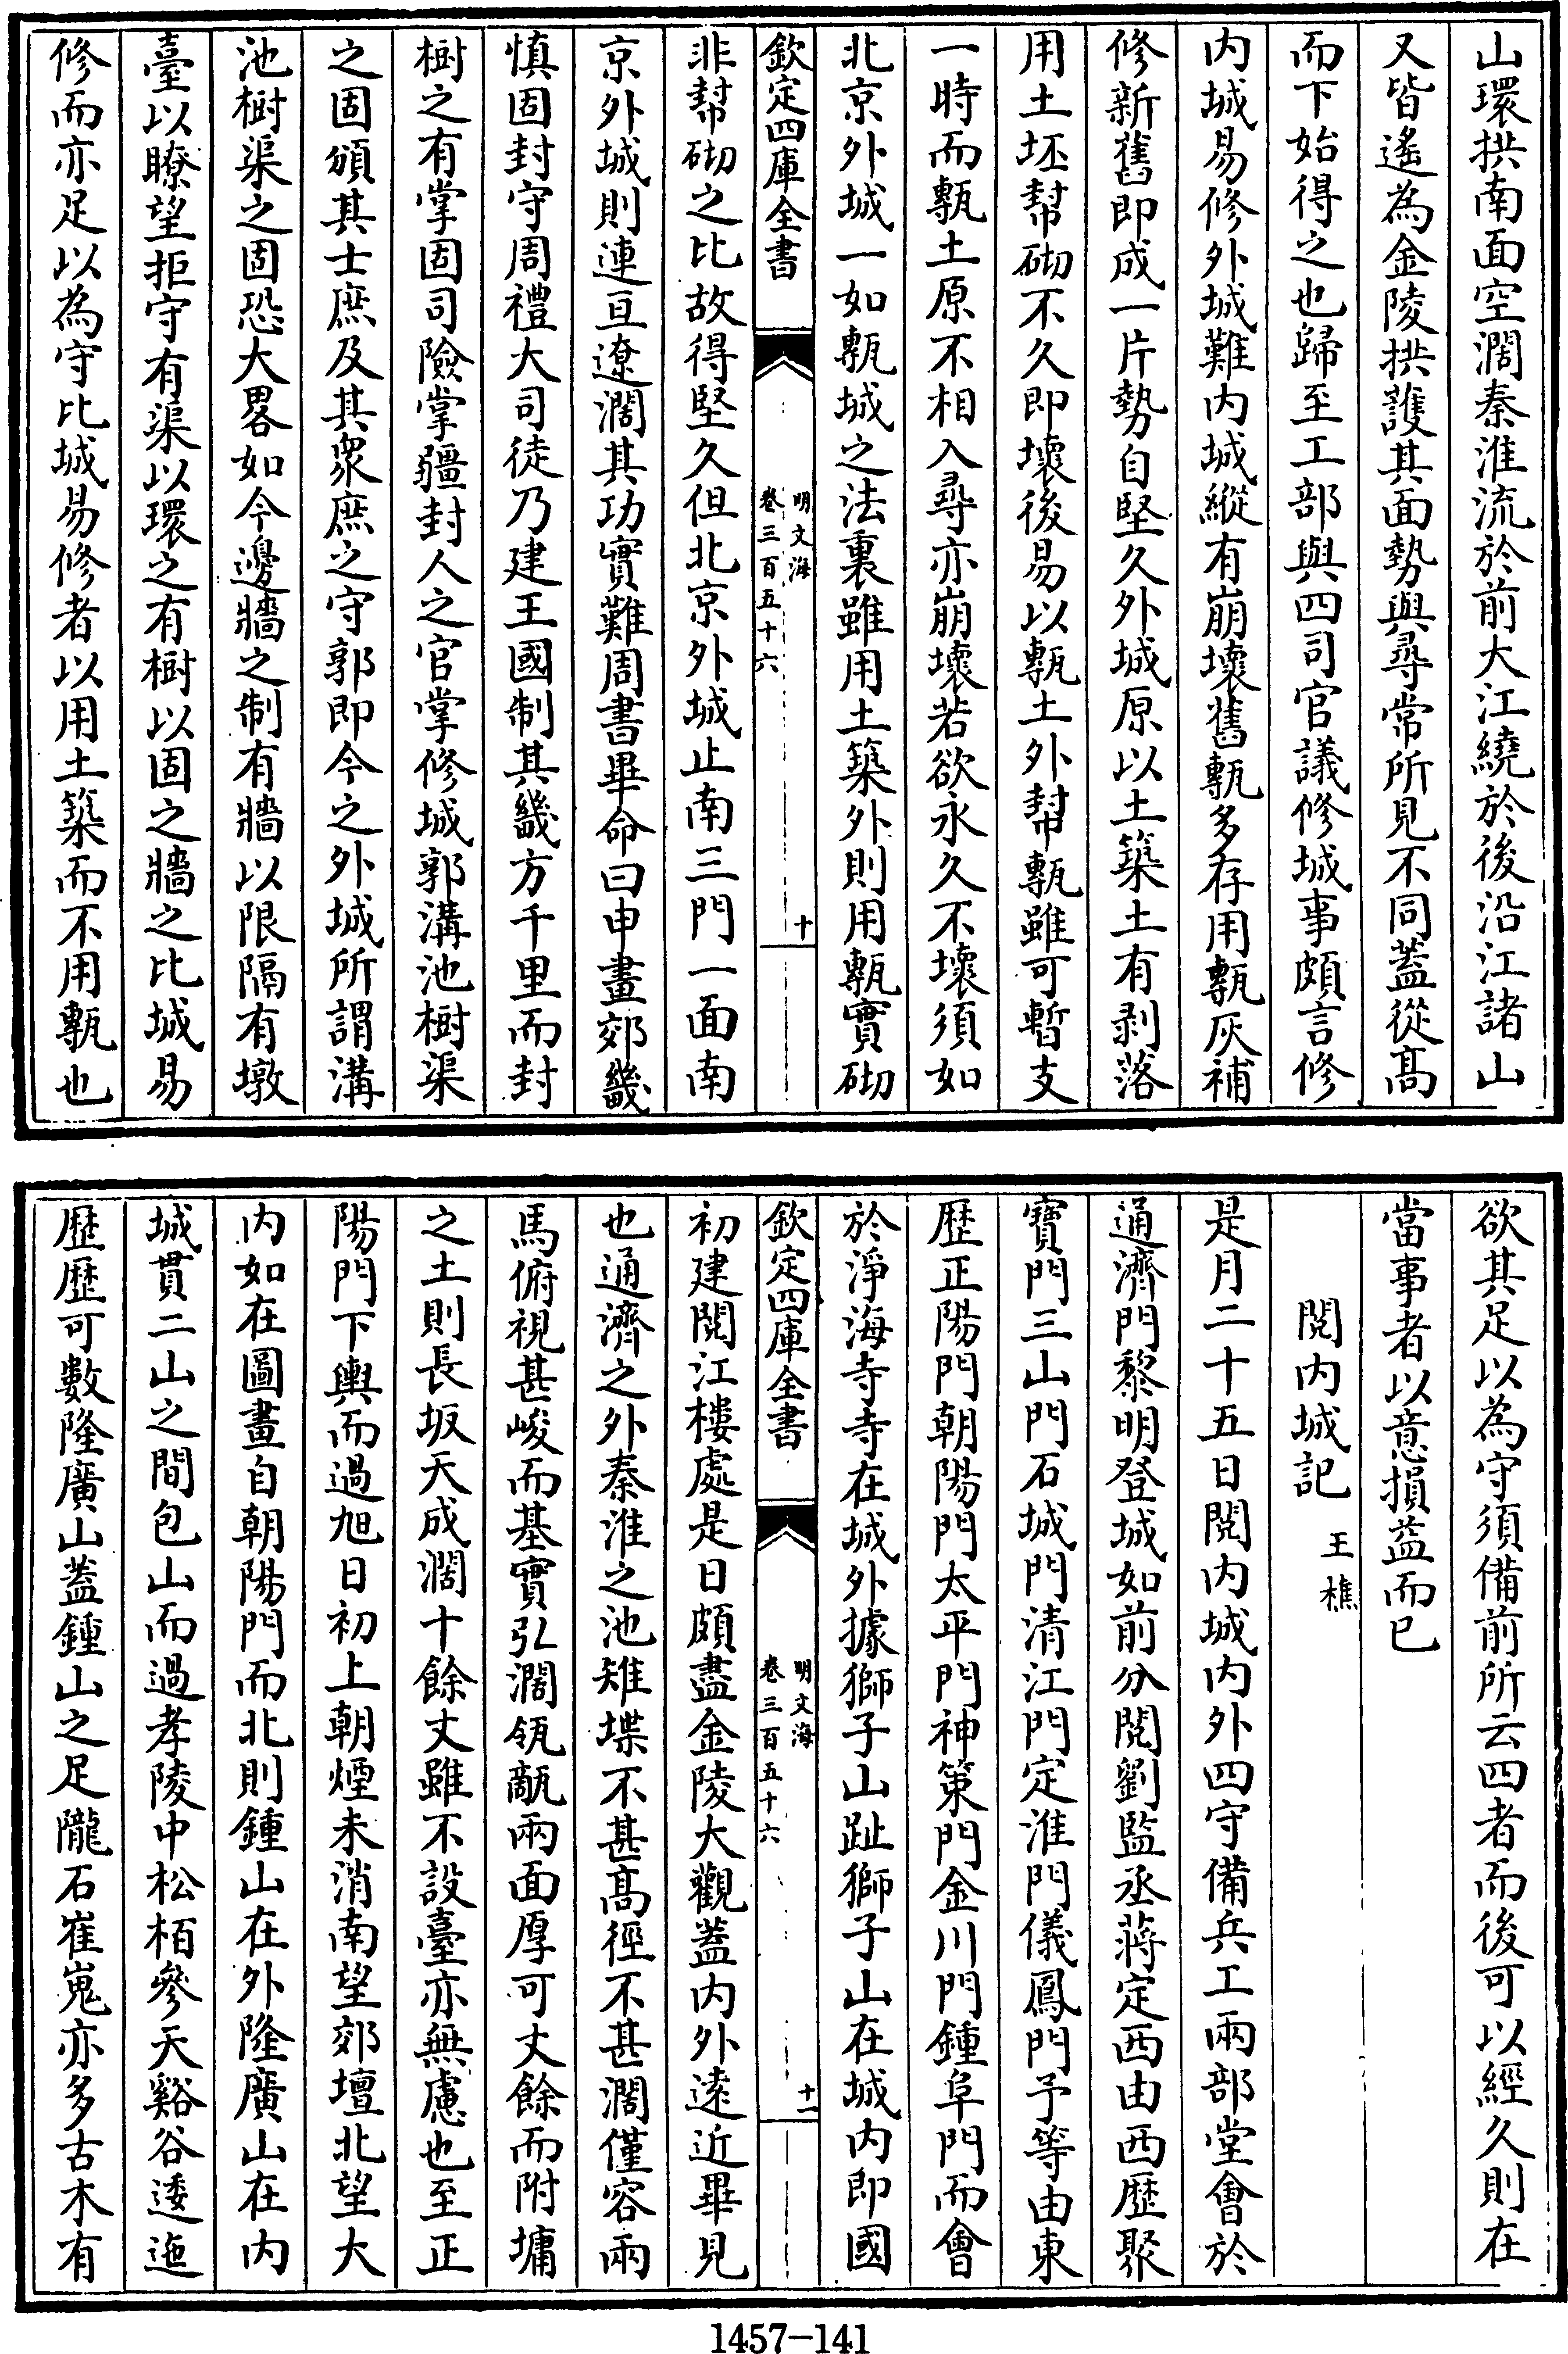 山環拱南面空濶秦淮流於前大江繞於後沿江諸山
又皆遙為金陵拱䕶其面勢與尋常所見不同蓋從髙
而下始得之也歸至工部與四司官議修城事頗言修
内城易修外城難内城縱有崩壞舊甎多存用甎灰補
修新舊即成一片勢自堅久外城原以土築土有剥落
用土坯幇砌不久即壞後易以甎土外幇甎雖可暫支
一時而甎土原不相入尋亦崩壞若欲永久不壞須如
北京外城一如甎城之法裏雖用土築外則用甎實砌
欽定四庫全書
明文海
卷三百五十六
十
非幇砌之比故得堅久但北京外城止南三門一面南
京外城則連亘遼濶其功實難周書畢命曰申畫郊畿
慎固封守周禮大司徒乃建王國制其畿方千里而封
樹之有掌固司險掌疆封人之官掌修城郭溝池樹渠
之固頒其士庶及其衆庶之守郭即今之外城所謂溝
池樹渠之固恐大畧如今邊牆之制有牆以限隔有墩
臺以瞭望拒守有渠以環之有樹以固之牆之比城易
修而亦足以為守比城易修者以用土築而不用甎也
欲其足以為守須備前所云四者而後可以經久則在
當事者以意損益而已
閱内城記 王樵
是月二十五日閱内城内外四守備兵工兩部堂會於
通濟門黎明登城如前分閱劉監丞蔣定西由西歴聚
寶門三山門石城門清江門定淮門儀鳳門予等由東
歴正陽門朝陽門太平門神策門金川門鍾阜門而會
於淨海寺寺在城外據獅子山趾獅子山在城内即國
欽定四庫全書
明文海
卷三百五十六
十一
初建閱江樓處是日頗盡金陵大觀蓋内外逺近畢見
也通濟之外秦淮之池雉堞不甚髙徑不甚濶僅容兩
馬俯視甚峻而基實弘濶瓴甋兩面厚可丈餘而附墉
之土則長坂天成濶十餘丈雖不設臺亦無慮也至正
陽門下輿而過旭日初上朝煙未消南望郊壇北望大
内如在圖畫自朝陽門而北則鍾山在外隆廣山在内
城貫二山之間包山而過孝陵中松栢參天谿谷逶迤
歴歴可數隆廣山蓋鍾山之足隴石崔嵬亦多古木有
1457-141